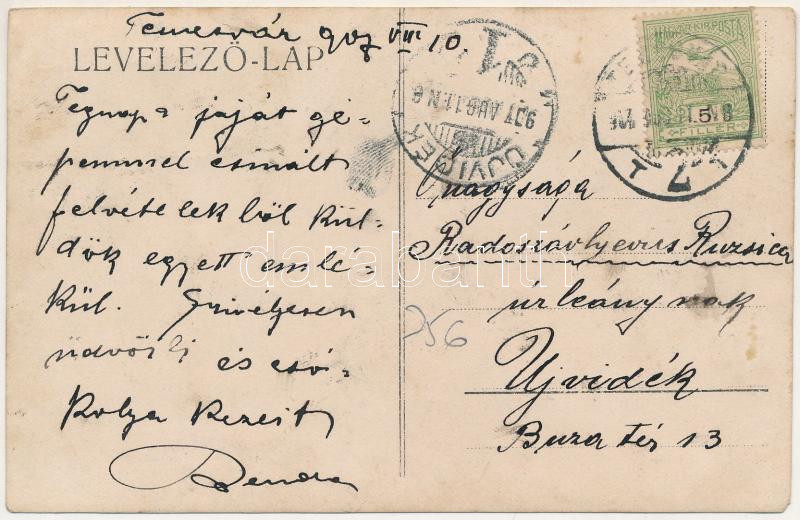 Temesvár 907 VIII 10.
LEVELEZŐ-LAP
Tegnap saját gé-
pemmel csinált
felvételekből kül-
dök egyett emlé-
kül. Szivélyesen
üdvözli és csó-
kolja kezeit
UJVIDÉK
907 AUG 11 N 6
MAGYAR KIR. POSTA
5
FILLER
Őnagysága
Radoszávlyevics Ruzsica
úrleánynak
Ujvidék
Buza tér 13
756
darabanth